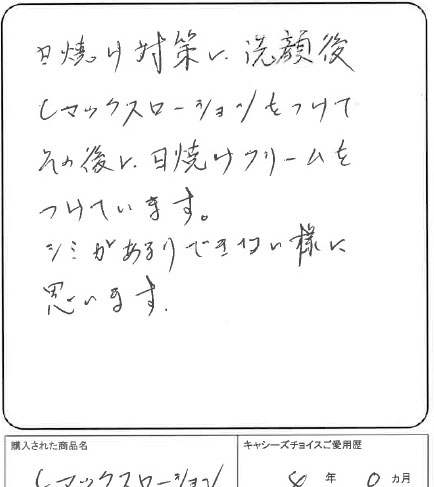 日焼け対策に、洗顔後
Cマックスローションをつけて
その後に、日焼けクリームを
つけています。
シミがあまりできない様に
思います。
購入された商品名
キャシーズチョイスご愛用歴
Cマックスローション
8 年 0 カ月